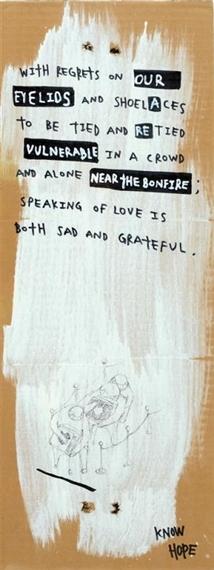 WITH REGRETS ON OUR
EYELIDS AND SHOELACES
TO BE TIED AND RETIED
VULNERABLE IN A CROWD
AND ALONE NEAR THE BONFIRE;
SPEAKING OF LOVE IS
BOTH SAD AND GRATEFUL.
KNOW
HOPE